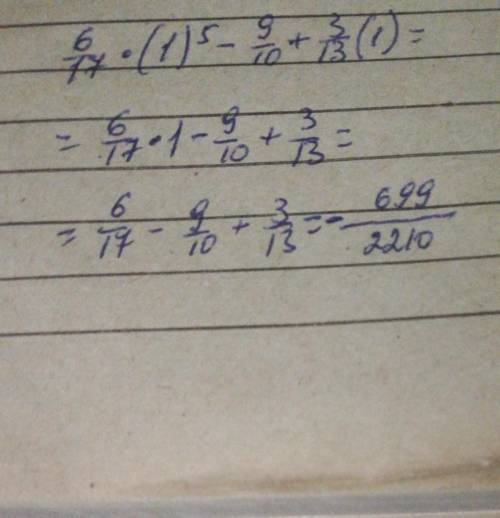 6/17 · (1)⁵ - 9/10 + 3/13 (1) =
= 6/17 · 1 - 9/10 + 3/13 =
= 6/17 - 9/10 + 3/13 = - 699/2210